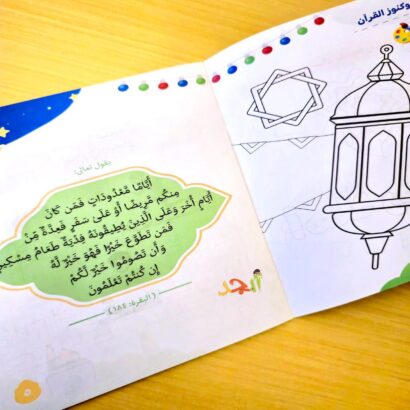 وكنوز القرآن
يقول تعالى:
أَيَّامًا مَّعْدُودَاتٍ فَمَن كَانَ
مِنكُم مَّرِيضًا أَوْ عَلَى سَفَرٍ فَعِدَّةٌ مِّنْ
أَيَّامٍ أُخَرَ وَعَلَى الَّذِينَ يُطِيقُونَهُ فِدْيَةٌ طَعَامُ مِسْكِينٍ
فَمَن تَطَوَّعَ خَيْرًا فَهُوَ خَيْرٌ لَّهُ
وَأَن تَصُومُوا خَيْرٌ لَّكُمْ
إِن كُنتُمْ تَعْلَمُونَ
(البقرة: ١٨٤)
أبجد